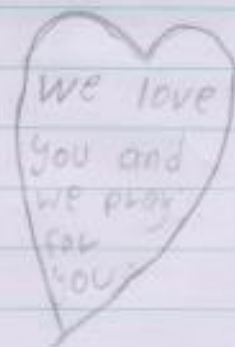 we love
you and
we pray
for
you